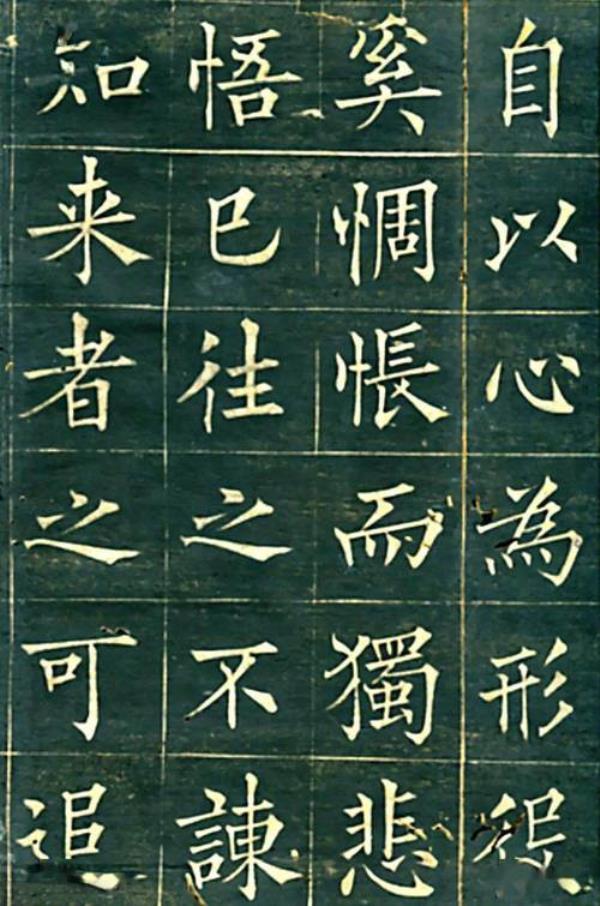 自以心為形役
奚惆悵而獨悲
悟已往之不諫
知来者之可追